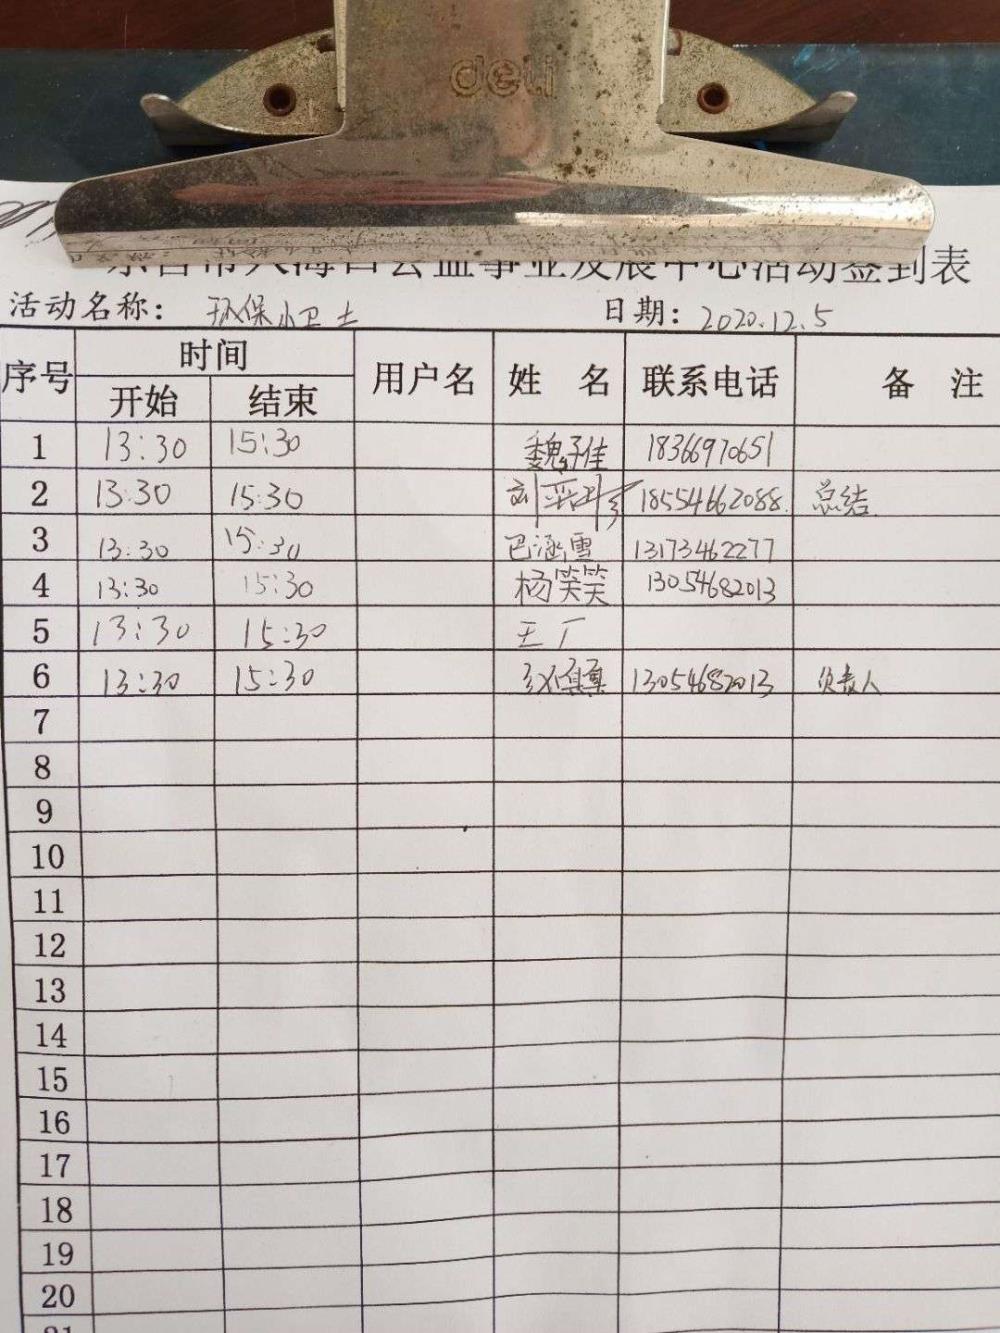 deli
活动签到表
活动名称： 环保小卫士 日期： 2020.12.5
序号 时间 用户名 姓 名 联系电话 备 注
开始 结束
1 13:30 15:30 魏子佳 18366970651
2 13:30 15:30 刘 18554662088 总结
3 13:30 15:30 巴涵雪 13173462277
4 13:30 15:30 杨笑笑 13054682013
5 13:30 15:30 王厂
6 13:30 15:30 13054682013 负责人
7
8
9
10
11
12
13
14
15
16
17
18
19
20